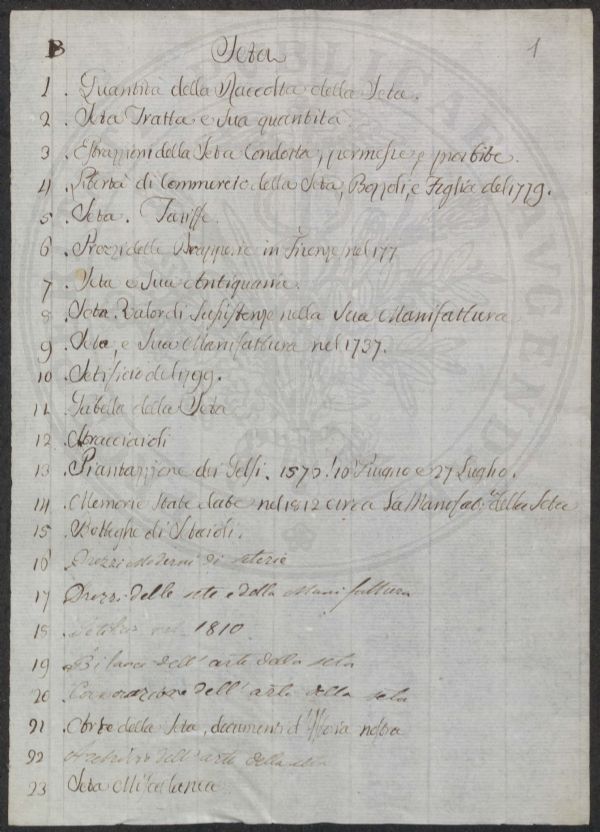 B Seta 1
1. Quantità della Raccolta della Seta.
2. Seta Tratta e Sua quantità.
3. Estrazzioni della Seta Condotta, permesse, e proibite.
4. Libertà di Commercio della Seta, Bozzoli, e Foglia del 1779.
5. Seta. Tariffe.
6. Prezzi delle Drapperie in Firenze nel 177
7. Seta e Sua Antiquaria.
8. Seta Valor di Sussistenze nella Sua Manifattura
9. Seta, e Sua Manifattura nel 1737.
10. Setificio del 1799.
11. Tabella della Seta
12. Stracciaioli
13. Piantazzione dei Gelsi. 1572. 10 Giugno e 27 Luglio.
14. Memorie State date nel 1812 circa La Manifat. della Seta
15. Botteghe di Setaioli.
16. Prezzi Moderni di seterie
17. Prezzi delle sete e della Manifattura
18. 1810
19. Bilanci dell'arte della seta
20. dell'arte della seta
21. Arte della Seta, documenti d'Istoria nostra
22. dell'arte della seta
23. Seta Miscelanea